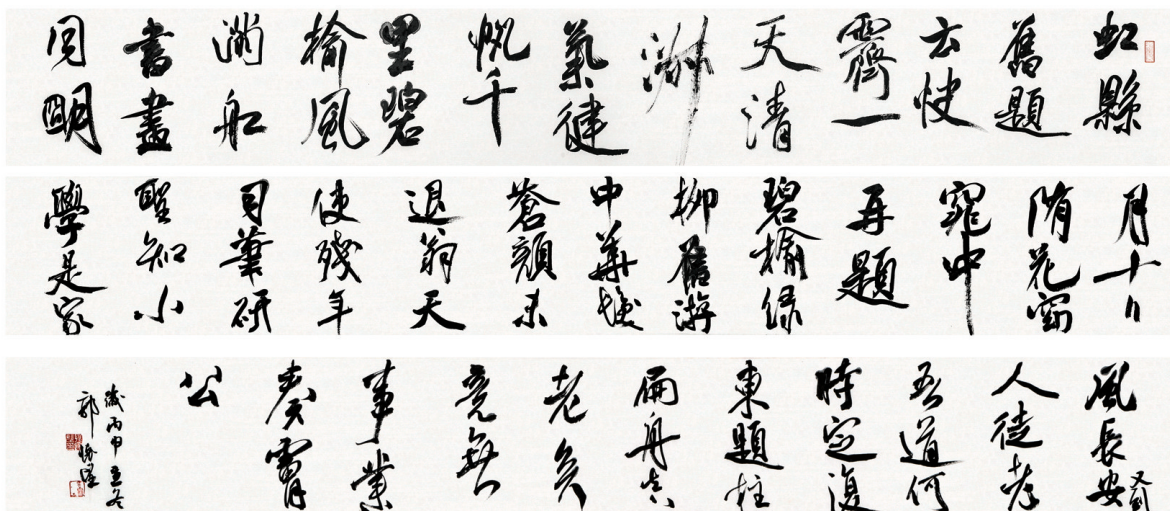 虹縣
舊題
云快
霽一
天清
淑
氣健
帆千
里碧
榆風
滿船
書畫
同明
月十日
隋花窈
窕中
再題
碧榆綠
柳舊游
中華髮
蒼顏未
退翁天
使殘年
司筆研
聖知小
學是家
風長安又到
人徒老
吾道何
時定復
東題柱
扁舟真
老矣
竟無
事業
奏膚
公
歲丙申立冬
郭